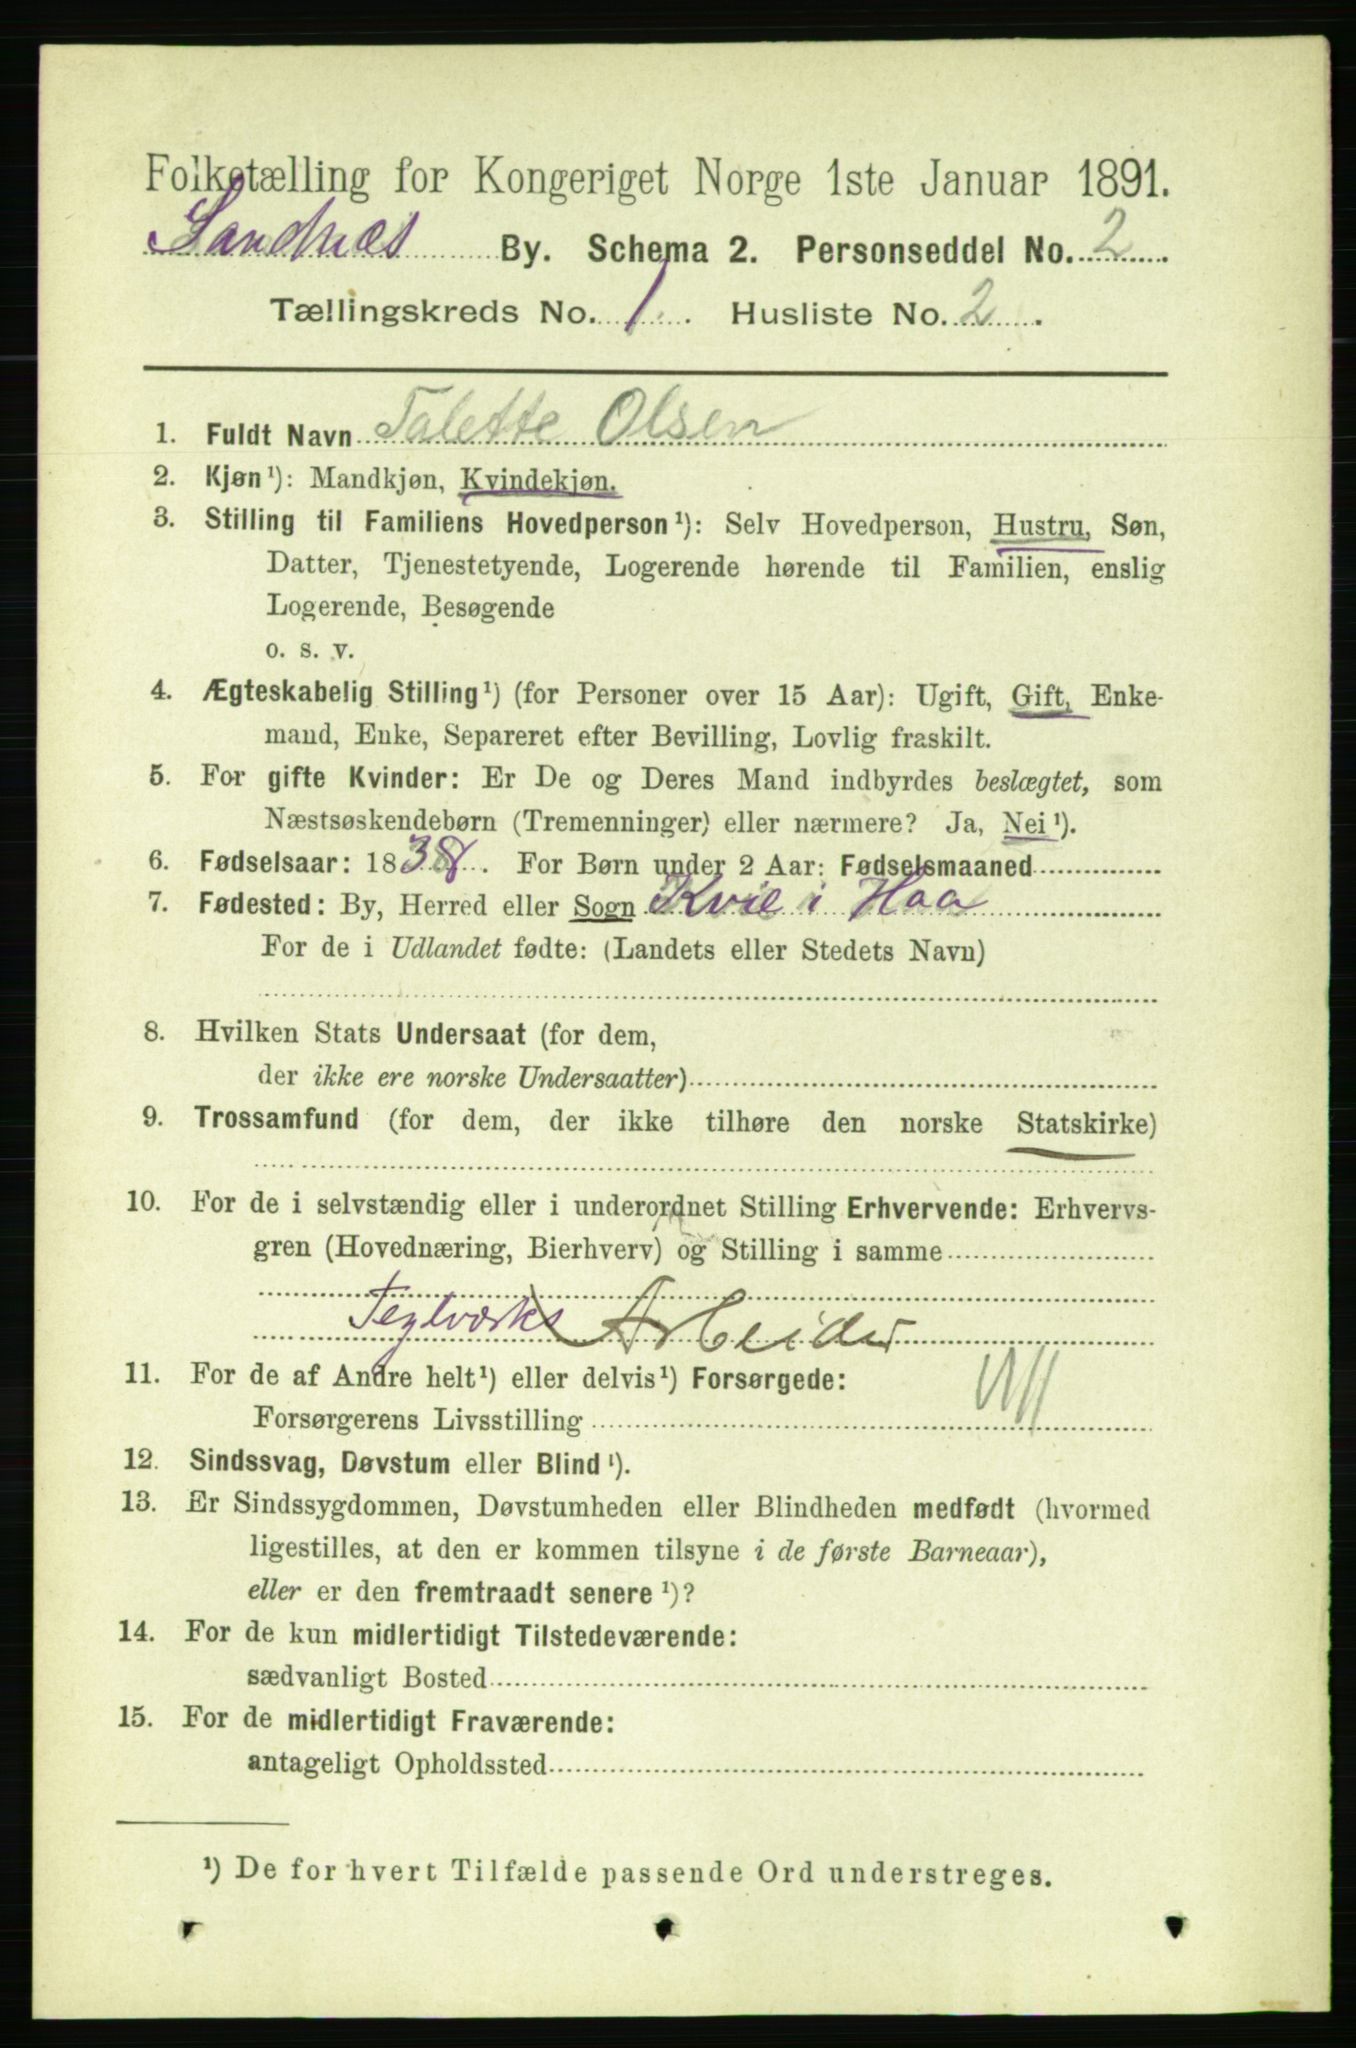 Folketælling for Kongeriget Norge 1ste Januar 1891.
Sandnæs By. Schema 2. Personseddel No. 2
Tællingskreds No. 1. Husliste No. 2.
1. Fuldt Navn Talette Olsen
2. Kjøn¹): Mandkjøn, Kvindekjøn.
3. Stilling til Familiens Hovedperson¹): Selv Hovedperson, Hustru, Søn,
Datter, Tjenestetyende, Logerende hørende til Familien, enslig
Logerende, Besøgende
o. s. v.
4. Ægteskabelig Stilling¹) (for Personer over 15 Aar): Ugift, Gift, Enke-
mand, Enke, Separeret efter Bevilling, Lovlig fraskilt.
5. For gifte Kvinder: Er De og Deres Mand indbyrdes beslægtet, som
Næstsøskendebørn (Tremenninger) eller nærmere? Ja, Nei¹).
6. Fødselsaar: 1838. For Børn under 2 Aar: Fødselsmaaned
7. Fødested: By, Herred eller Sogn Kvie i Haa
For de i Udlandet fødte: (Landets eller Stedets Navn)
8. Hvilken Stats Undersaat (for dem,
der ikke ere norske Undersaatter)
9. Trossamfund (for dem, der ikke tilhøre den norske Statskirke)
10. For de i selvstændig eller i underordnet Stilling Erhvervende: Erhvervs-
gren (Hovednæring, Bierhverv) og Stilling i samme
Teglværks Arbeider
11. For de af Andre helt¹) eller delvis¹) Forsørgede:
Forsørgerens Livsstilling
12. Sindssvag, Døvstum eller Blind¹).
13. Er Sindssygdommen, Døvstumheden eller Blindheden medfødt (hvormed
ligestilles, at den er kommen tilsyne i de første Barneaar),
eller er den fremtraadt senere¹)?
14. For de kun midlertidigt Tilstedeværende:
sædvanligt Bosted
15. For de midlertidigt Fraværende:
antageligt Opholdssted
¹) De for hvert Tilfælde passende Ord understreges.